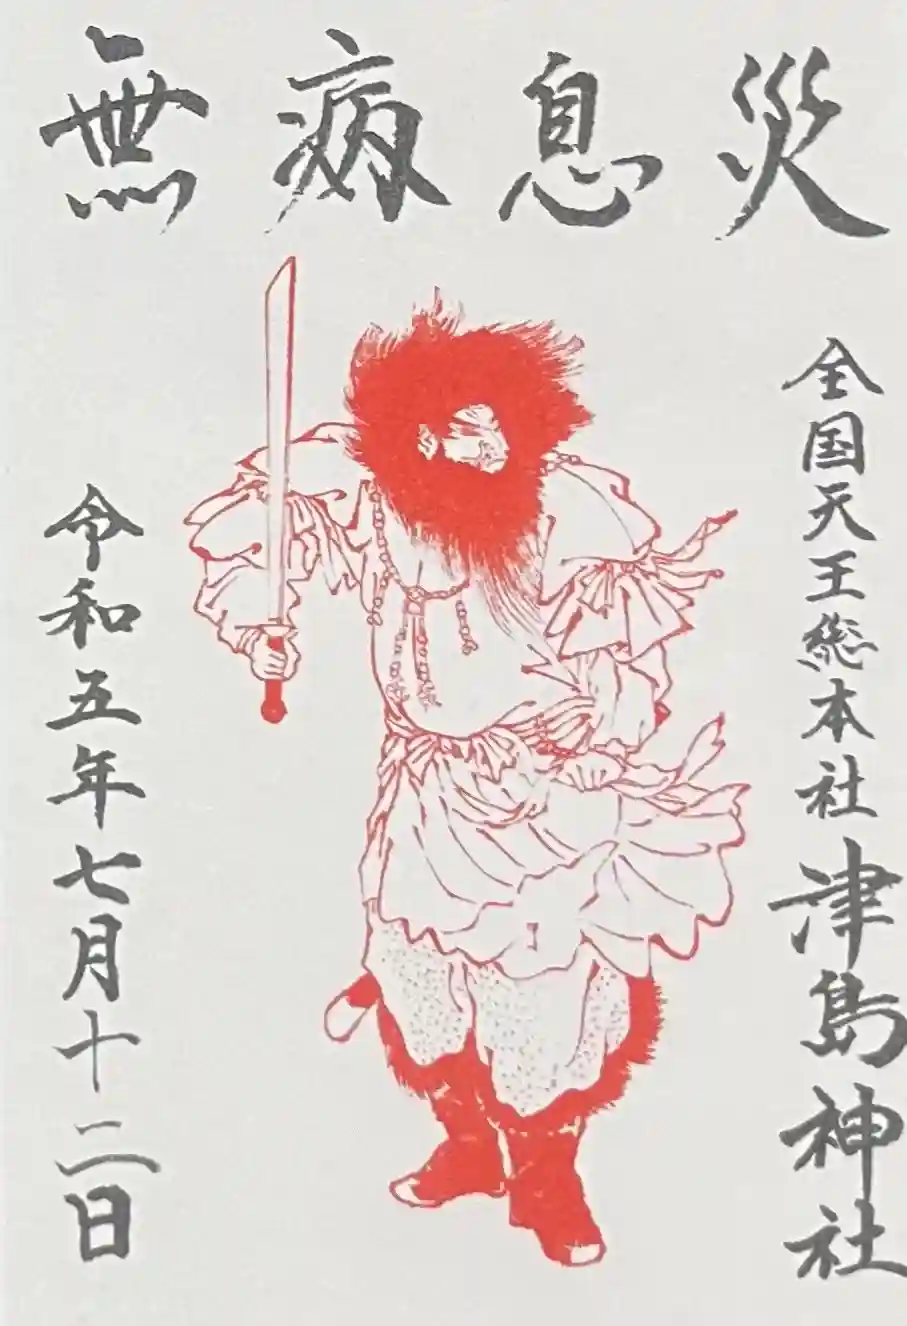 無病息災
全国天王総本社 津島神社
令和五年七月十二日